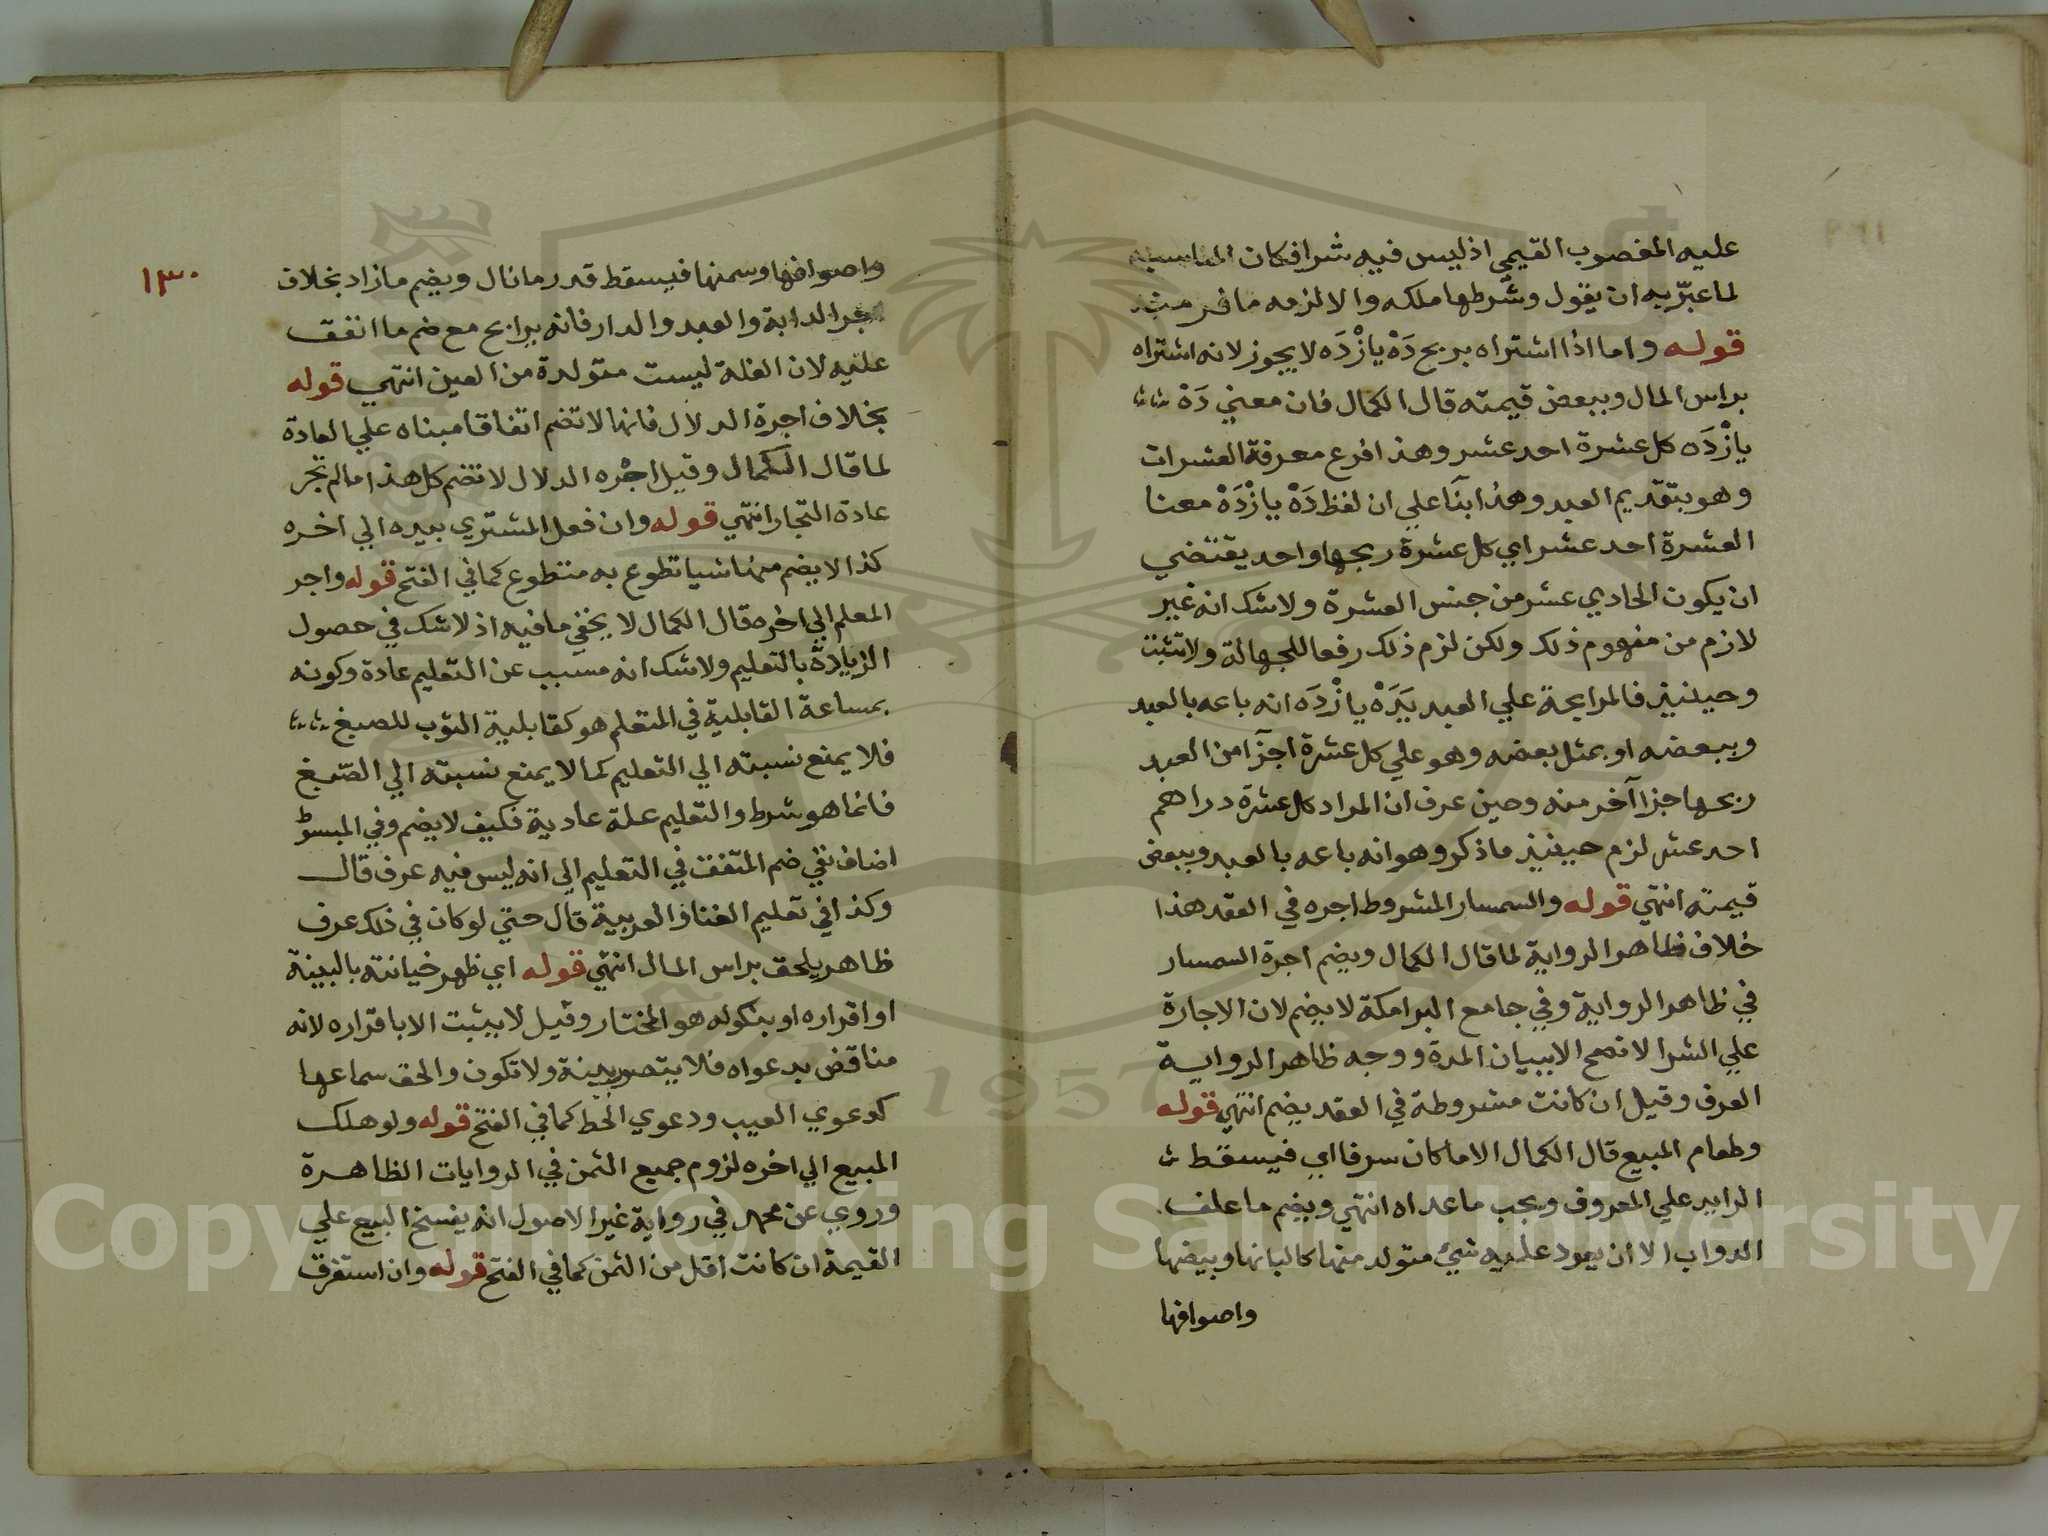 عليه المغصوب القيمي اذ ليس فيه شرا فكان المناسب
لما عبّر به ان يقول وشرطها ملكه والا لزمه ما فر منه
قوله واما اذا اشتراه بربح دَهْ يازْدَه لا يجوز لانه اشتراه
براس المال وببعض قيمته قال الكمال فان معني دَهْ
يازْدَه كل عشرة احد عشر وهذا فرع معرفة العشرات
وهو بتقديم العبد وهذا بنآ علي ان لفظ دَهْ يازْدَهْ معنا
العشرة احد عشر اي كل عشرة ربحها واحد يقتضي
ان يكون الحادي عشر من جنس العشرة ولا شك انه غير
لازم من مفهوم ذلك ولكن لزم ذلك رفعا للجهالة ولا تثبت
وحينيذ فالمرابحة علي العبد بَدَهْ يازْدَه انه باعه بالعبد
وببعضه او بمثل بعضه وهو علي كل عشرة اجزآ من العبد
ربحها جزا آخر منه وحين عرف ان المراد كل عشرة دراهم
احد عشر لزم حينيذ ما ذكر وهو انه باعه بالعبد وببعض
قيمته انتهي قوله والسمسار المشروط اجره في العقد هذا
خلاف ظاهر الرواية لما قال الكمال ويضم اجرة السمسار
في ظاهر الرواية وفي جامع البرامكة لا يضم لان الاجارة
علي الشرا لا تصح الا ببيان المدة ووجه ظاهر الرواية
العرف وقيل ان كانت مشروطة في العقد يضم انتهي قوله
وطعام المبيع قال الكمال الا ما كان سرفا اي فيسقط
الزايد علي المعروف ويجب ما عداه انتهي ويضم ما علف
الدواب الا ان يعود عليه شيء متولد منها كالبانها وبيضها
واصوافها
١٣٠
واصوافها وسمنها فيسقط قدر ما نال ويضم ما زاد بخلاف
اجر الدابة والعبد والدار فانه يرابح مع ضم ما انفق
عليه لان الغلة ليست متولدة من العين انتهي قوله
بخلاف اجرة الدلال فانها لا تضم اتفاقا مبناه علي العادة
لما قال الكمال وقيل اجره الدلال لا تضم كل هذا ما لم تجر
عادة التجار انتهي قوله وان فعل المشتري بيده الي اخره
كذا لا يضم منها شيا تطوع به متطوع كما في الفتح قوله واجر
المعلم الي اخره قال الكمال لا يخفي ما فيه اذ لا شك في حصول
الزيادة بالتعليم ولا شك انه مسبب عن التعليم عادة وكونه
بمساعة القابلية في المتعلم هو كقابلية الثوب للصبغ
فلا يمنع نسبته الي التعليم كما لا يمنع نسبته الي الصّبغ
فانما هو شرط والتعليم علة عادية فكيف لا يضم وفي المبسوط
اضاف نفي ضم المنفق في التعليم الي انه ليس فيه عرف قال
وكذا في تعليم الغنا والعربية قال حتي لو كان في ذلك عرف
ظاهر يلحق براس المال انتهي قوله اي ظهر خيانته بالبينة
او اقراره او بنكوله هو المختار وقيل لا يثبت الا باقراره لانه
مناقض بدعواه فلا يتصور بينة ولا نكون والحق سماعها
كدعوي العيب ودعوي الحط كما في الفتح قوله ولو هلك
المبيع الي اخره لزوم جميع الثمن في الروايات الظاهرة
وروي عن محمد في رواية غير الاصول انه يفسخ البيع علي
القيمة ان كانت اقل من الثمن كما في الفتح قوله وان استغرق
Copyright © King Saud University
1957